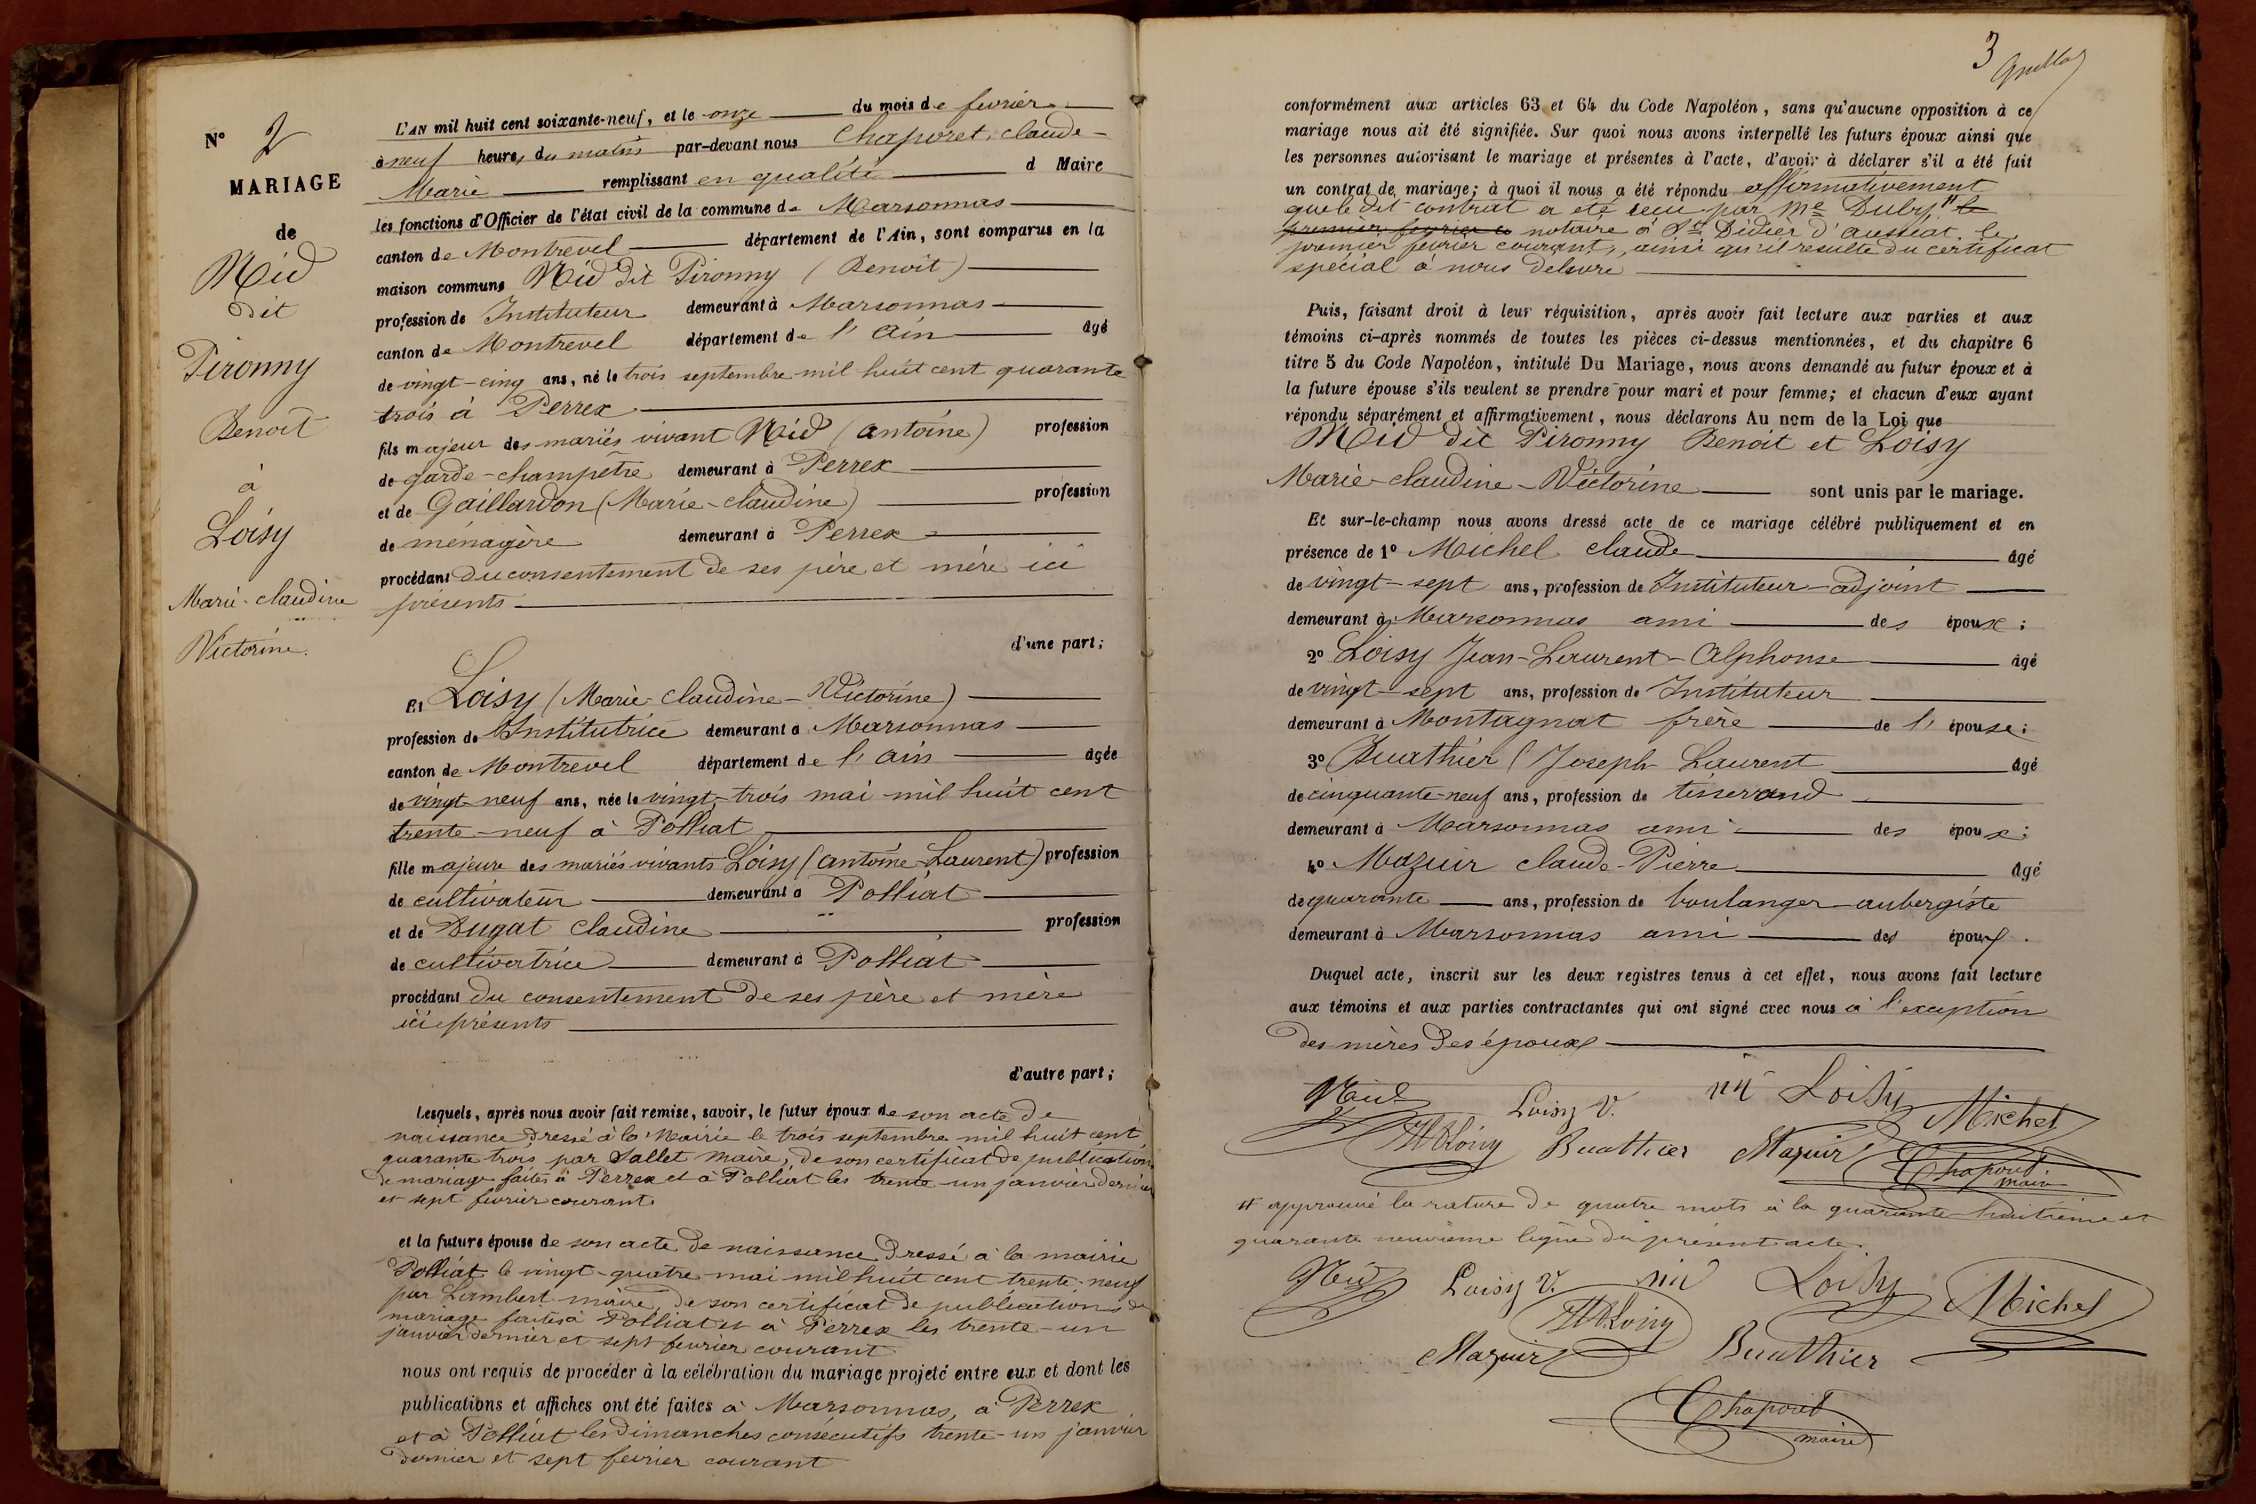 N° 2
MARIAGE
de
Nid
dit
Pironny
Benoît
à
Loisy
Marie-claudine
Victorine.
L'AN mil huit cent soixante-neuf, et le onze du mois de fevrier
à neuf heures du matin par-devant nous Chaporet, claude-
Marie remplissant en qualité d Maire
les fonctions d'Officier de l'état civil de la commune de Marsonnas
canton de Montrevel département de l'Ain, sont comparus en la
maison commune Nid dit Pironny (Benoît)
profession de Instituteur demeurant à Marsonnas
canton de Montrevel département de l'ain âgé
de vingt-cinq ans, né le trois septembre mil huit cent quarante
trois à Perrex
fils majeur des mariés vivant Nid (antoine) profession
de garde-champêtre demeurant à Perrex
et de Gaillardon (Marie-claudine) profession
de ménagère demeurant à Perrex
procédant du consentement de ses père et mère ici
présents
d'une part;
Et Loisy (Marie-claudine-Victorine)
profession de Institutrice demeurant à Marsonnas
canton de Montrevel département de l'ain âgée
de vingt-neuf ans, née le vingt-trois mai mil huit cent
trente-neuf à Polliat
fille majeure des mariés vivants Loisy (antoine-Laurent) profession
de cultivateur demeurant à Polliat
et de Dugat claudine profession
de cultivatrice demeurant à Polliat
procédant du consentement de ses père et mère
ici présents
d'autre part;
Lesquels, après nous avoir fait remise, savoir, le futur époux de son acte de
naissance dressé à la Mairie le trois septembre mil huit cent
quarante trois par Sallet maire, de son certificat de publication
de mariage faites à Perrex et à Polliat les trente-un janvier dernier
et sept février courant
et la future épouse de son acte de naissance dressé à la mairie
Polliat le vingt-quatre mai mil huit cent trente-neuf
par Lambert maire, de son certificat de publications de
mariage faites à Polliat et à Perrex les trente-un
janvier dernier et sept fevrier courant
nous ont requis de procéder à la célébration du mariage projeté entre eux et dont les
publications et affiches ont été faites à Marsonnas, à Perrex
et à Polliat les dimanches consécutifs trente-un janvier
dernier et sept fevrier courant
3
conformément aux articles 63 et 64 du Code Napoléon, sans qu'aucune opposition à ce
mariage nous ait été signifiée. Sur quoi nous avons interpellé les futurs époux ainsi que
les personnes autorisant le mariage et présentes à l'acte, d'avoir à déclarer s'il a été fait
un contrat de mariage; à quoi il nous a été répondu affirmativement
que le dit contrat a été recu par Me Dubry le
premier fevrier notaire à St Didier d'aussiat le
premier février courant, ainsi qu'il resulte du certificat
spécial à nous délivré
Puis, faisant droit à leur réquisition, après avoir fait lecture aux parties et aux
témoins ci-après nommés de toutes les pièces ci-dessus mentionnées, et du chapitre 6
titre 5 du Code Napoléon, intitulé Du Mariage, nous avons demandé au futur époux et à
la future épouse s'ils veulent se prendre pour mari et pour femme; et chacun d'eux ayant
répondu séparément et affirmativement, nous déclarons Au nom de la Loi que
Nid dit Pironny Benoit et Loisy
Marie-claudine-Victorine sont unis par le mariage.
Et sur-le-champ nous avons dressé acte de ce mariage célébré publiquement et en
présence de 1° Michel claude âgé
de vingt-sept ans, profession de Instituteur-adjoint
demeurant à Marsonnas ami des époux;
2° Loisy Jean-Laurent-Alphonse âgé
de vingt-sept ans, profession de Instituteur
demeurant à Montagnat frère de l'épouse;
3° Buathier (Joseph Laurent âgé
de cinquante-neuf ans, profession de tisserand
demeurant à Marsonnas ami des époux;
4° Mazuir claude-Pierre âgé
de quarante ans, profession de boulanger-aubergiste
demeurant à Marsonnas ami des époux.
Duquel acte, inscrit sur les deux registres tenus à cet effet, nous avons fait lecture
aux témoins et aux parties contractantes qui ont signé avec nous à l'exception
des mères des époux
Nid Loisy V. nid Loisy Michel
Loisy Buathier Mazuir Chaporet
maire
approuvé la rature de quatre mots à la quarante-huitième et
quarante neuvième ligne du présent acte.
Nid Loisy V. nid Loisy Michel
Loisy
Mazuir Buathier
Chaporet
maire